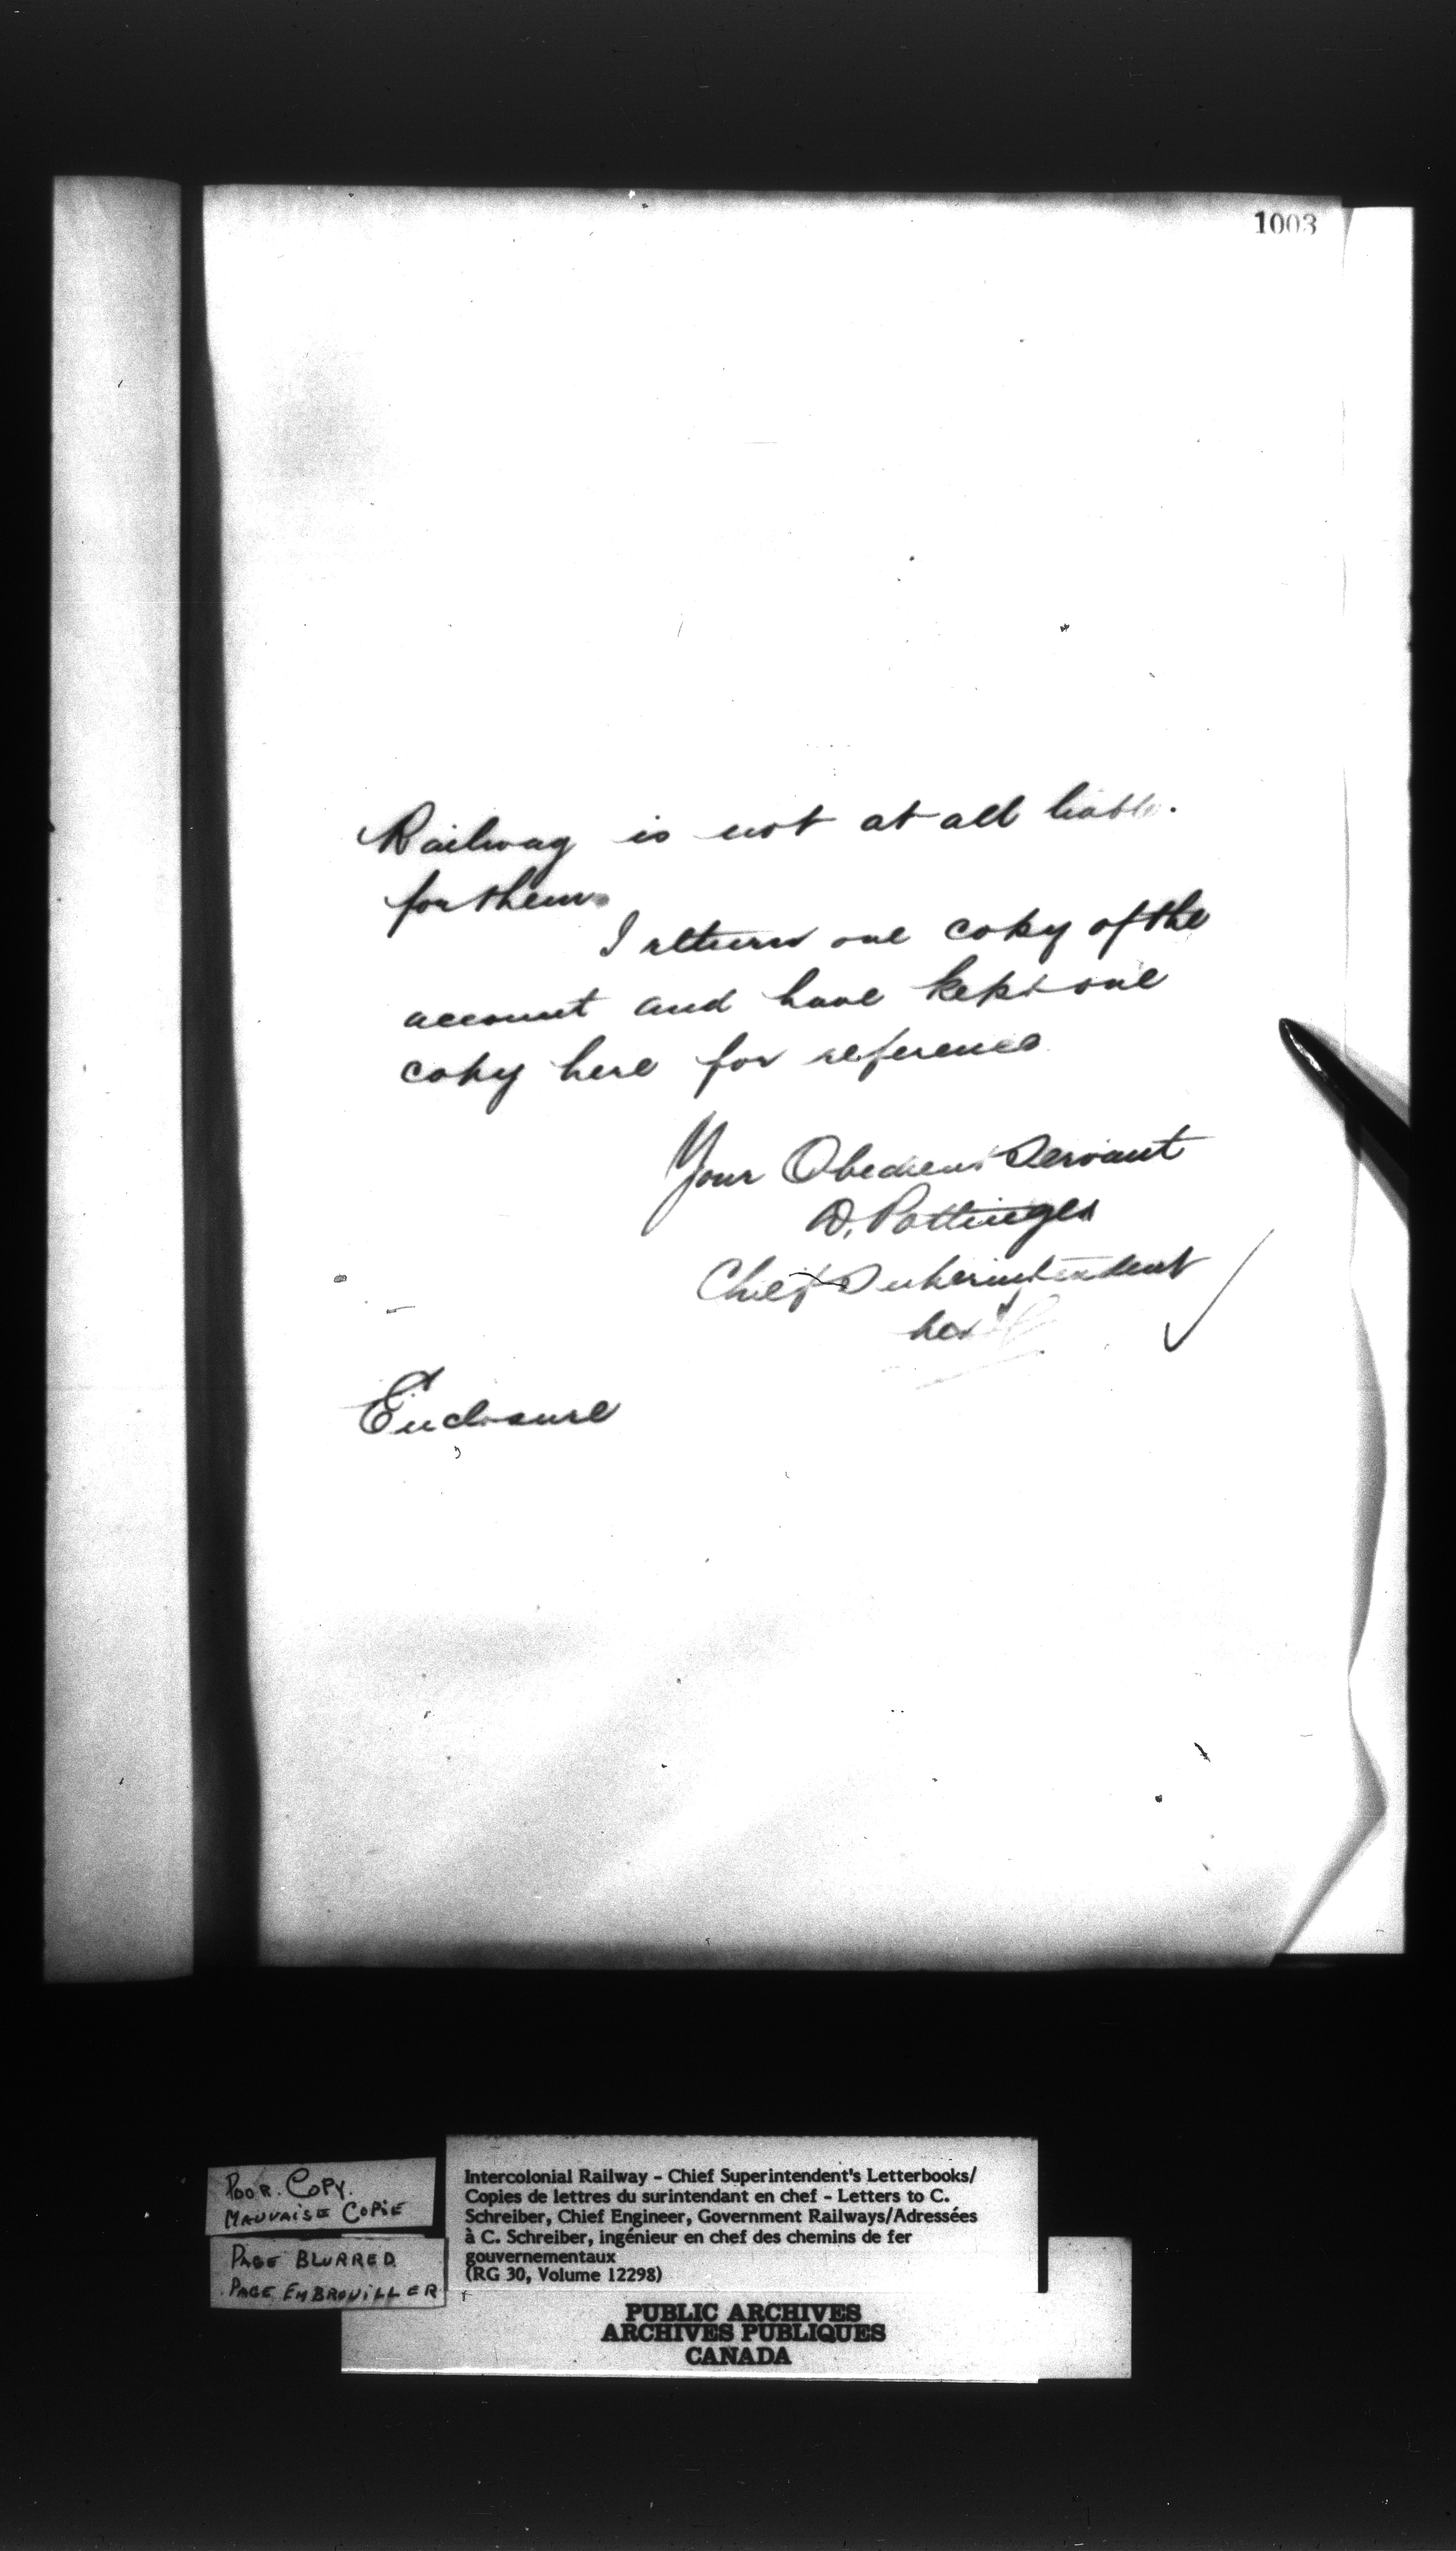 1003
Railway is not at all liable
for them.
I return one copy of the
account and have kept one
copy here for reference
Your Obedient Servant
D. Pottinger
Chief Superintendent
Enclosure
POOR COPY.
MAUVAISE COPIE
PAGE BLURRED
PAGE EMBROUILLER
Intercolonial Railway - Chief Superintendent's Letterbooks/
Copies de lettres du surintendant en chef - Letters to C.
Schreiber, Chief Engineer, Government Railways/Adressées
à C. Schreiber, ingénieur en chef des chemins de fer
gouvernementaux
(RG 30, Volume 12298)
PUBLIC ARCHIVES
ARCHIVES PUBLIQUES
CANADA